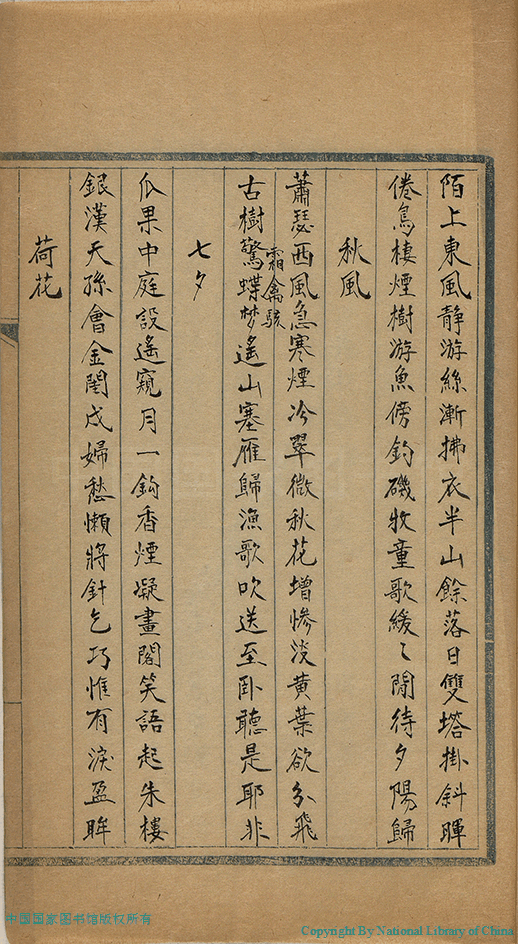 陌上東風静游絲漸拂衣半山餘落日雙塔掛斜暉
倦鳥棲煙樹游魚傍釣磯牧童歌緩〻閒待夕陽歸
秋風
蕭瑟西風急寒煙冷翠微秋花增慘淡黃葉欲分飛
霜禽駭
古樹驚蝶夢遙山塞雁歸漁歌吹送至卧聽是耶非
七夕
瓜果中庭設遙窺月一鈎香煙凝畫閣笑語起朱樓
銀漢天孫會金閨戍婦愁懶將針乞巧惟有淚盈眸
荷花
中国国家图书馆版权所有
Copyright By National Library of China